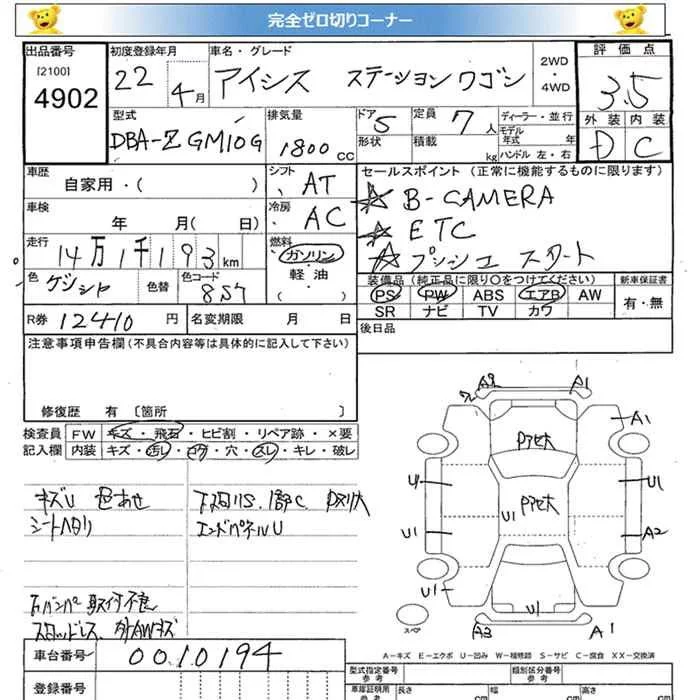 完全ゼロ切りコーナー
出品番号 初度登録年月 車名・グレード 2WD ・ 4WD 評価点
[2100] 4902 22年 4月 アイシス ステーションワゴン 3.5
外装 内装
D C
型式 排気量 ドア 定員 ディーラー・並行
DBA-ZGM10G 1800cc 5 7人 モデル年式 年
形状 積載 kg ハンドル 左・右
車歴 シフト セールスポイント(正常に機能するものに限ります)
自家用・( ) AT ☆ B-CAMERA
車検 冷房 ☆ ETC
年 月( 日) AC ☆ プッシュ スタート
走行 燃料
14万1千193km ガソリン
軽油
・( )
色 色替 色コード
装備品(純正品に限り○をつけてください) 新車保証書
PS PW ABS エアB AW 有・無
SR ナビ TV カワ
R券 12410円 名変期限 月 日 後日品
注意事項申告欄(不具合内容等は具体的に記入して下さい)
修復歴 有〔箇所 〕
検査員 FW キズ・飛石・ヒビ割・リペア跡・×要
記入欄 内装 キズ・汚レ・コゲ・穴・スレ・キレ・破レ
キズU 色あせ
シートヘタリ
エンドパネルU
取付不良
A2 A1
A1
Pアセ大
Pアセ大
U1 U1
U1
U1 A2
U1
U1
A3 A1
スペア
A-キズ E-エクボ U-凹み W-補修跡 S-サビ C-腐食 XX-交換済
車台番号 0010194
登録番号
型式指定番号 参考 類別区分番号 参考
車庫証明用 参考 長さ cm 幅 cm 高さ cm